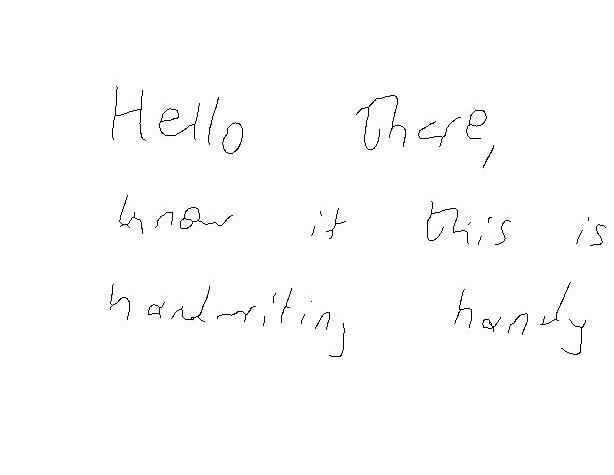 Hello there,
know if this is
handwriting handy